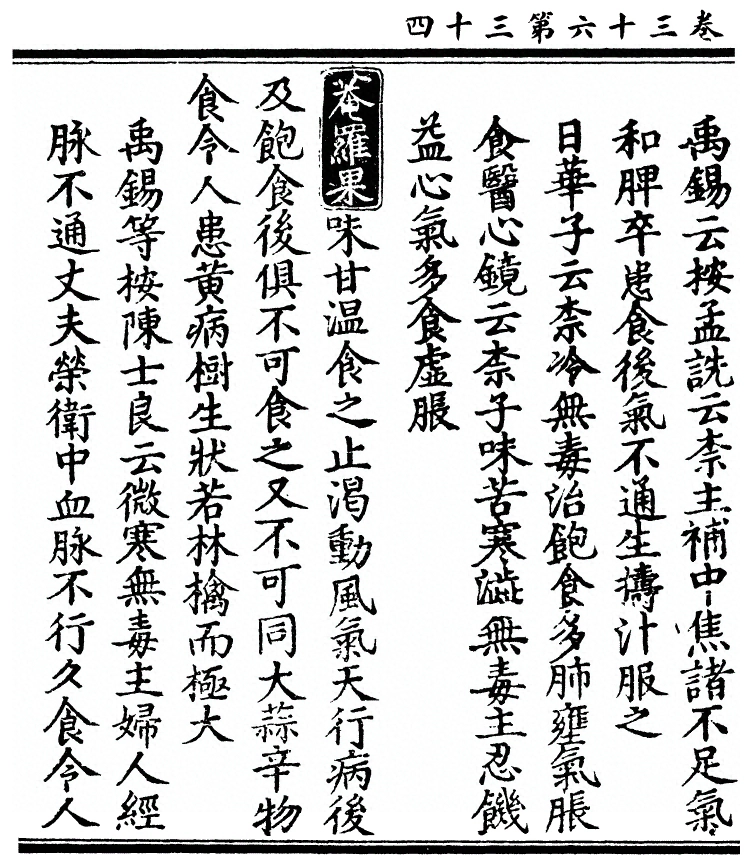 卷三十六第三十四
禹錫云按孟詵云柰主補中焦諸不足氣
和脾卒患食後氣不通生擣汁服之
日華子云柰冷無毒治飽食多肺壅氣脹
食醫心鏡云柰子味苦寒澁無毒主忍饑
益心氣多食虛脹
菴羅果味甘温食之止渴動風氣天行病後
及飽食後俱不可食之又不可同大蒜辛物
食令人患黄病樹生狀若林檎而極大
禹錫等按陳士良云微寒無毒主婦人經
脉不通丈夫榮衛中血脉不行久食令人